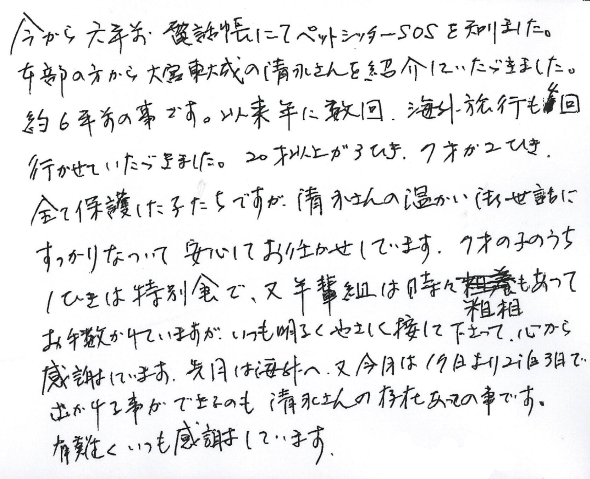 今から六年前、電話帳にてペットシッターSOSを知りました。
本部の方から大宮東大成の清水さんを紹介していただきました。
約6年前の事です。以来年に数回、海外旅行も 回
行かせていただきました。20才以上が3ひき、7才が2ひき、
全て保護した子たちですが、清水さんの温かい御世話に
すっかりなついて安心してお任かせしています。7才の子のうち
1ぴきは特別食で、又年輩組は時々粗相もあって
お手数かけていますが、いつも明るくやさしく接して下さって、心から
感謝しています。先月は海外へ、又今月は19日より2泊3日で
出かける事ができるのも清水さんの存在あっての事です。
有難くいつも感謝しています。